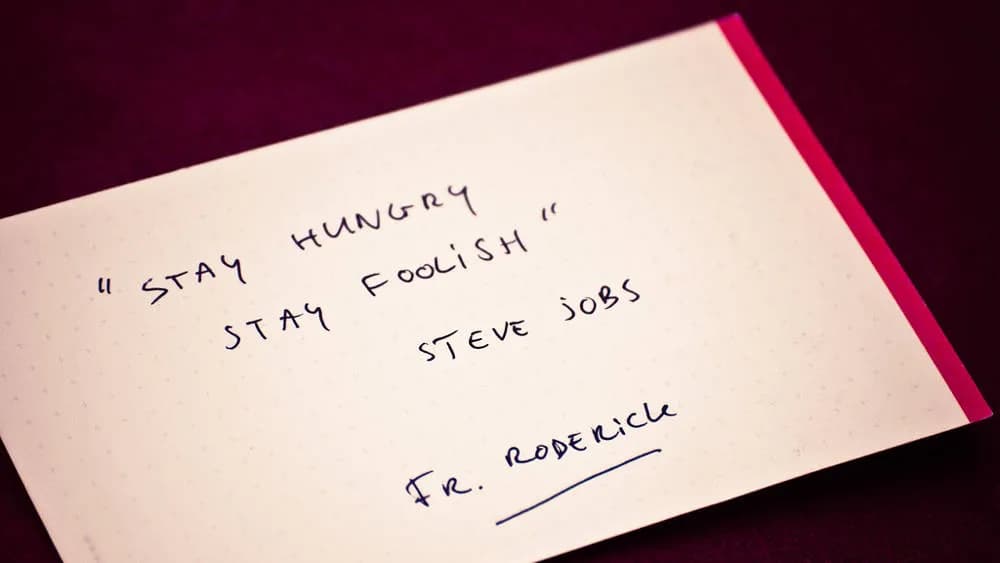 “ STAY HUNGRY
STAY FOOLiSH “
STEVE JOBS
FR. RODERiCK